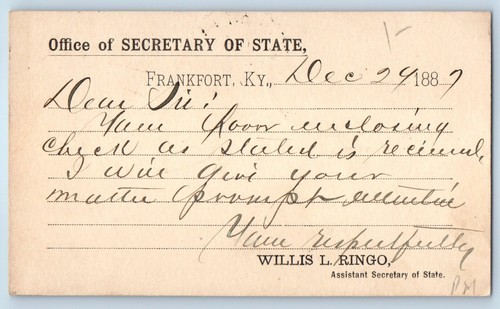 Office of SECRETARY OF STATE,
FRANKFORT, KY., Dec 24 1887
Dear Sir:
Your favor enclosing
check as stated is received,
I will give your
matter prompt attention
Yours respectfully
WILLIS L. RINGO,
Assistant Secretary of State.